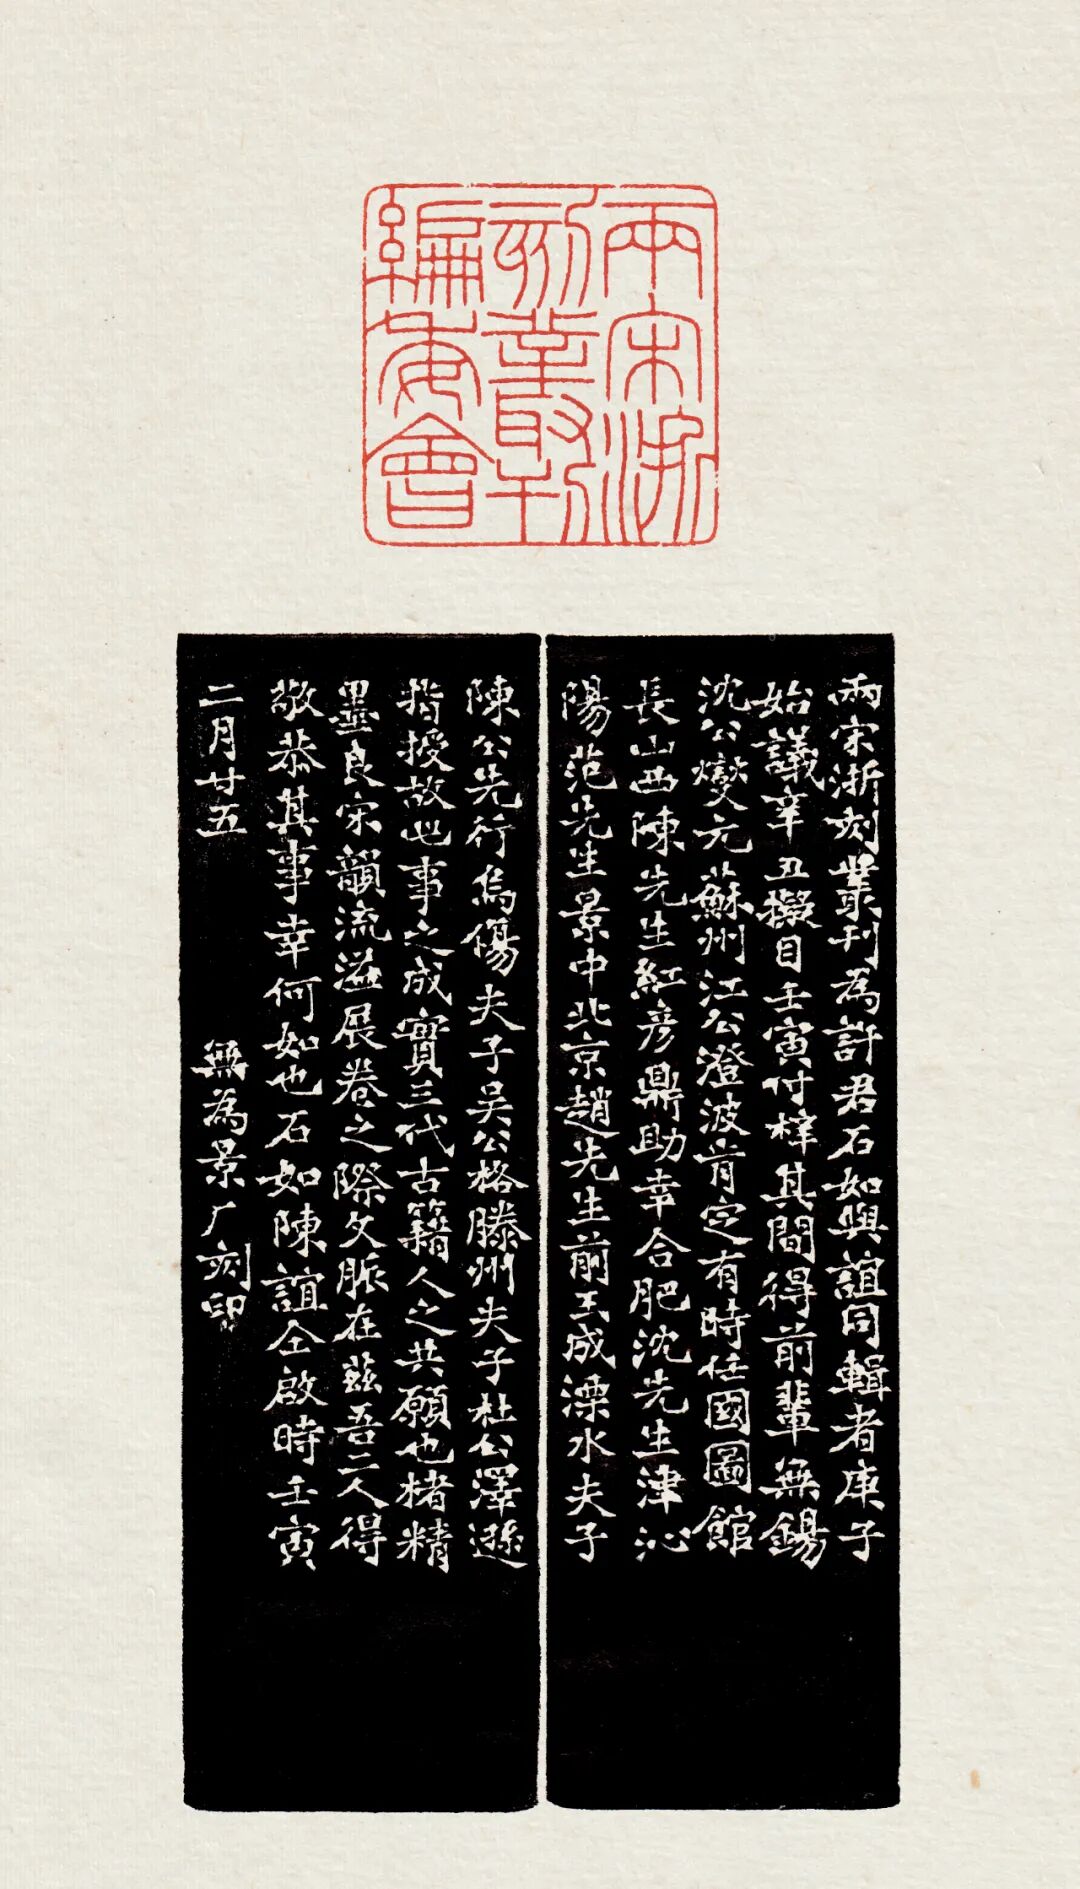 兩宋浙
刻叢刊
編委會
兩宋浙刻叢刊為許君石如與誼同輯者庚子
始議辛丑擬目壬寅付梓其間得前輩無錫
沈公燮元蘇州江公澄波肯定有時任國圖館
長山西陳先生紅彦鼎助幸合肥沈先生津沁
陽范先生景中北京趙先生前王成溧水夫子
陳公先行烏傷夫子吴公格滕州夫子杜公澤遜
指授故此事之成實三代古籍人之共願也楮精
墨良宋韻流溢展卷之際文脈在兹吾二人得
敬恭其事幸何如也石如陳誼仝啟時壬寅
二月廿五 無為景厂刻印